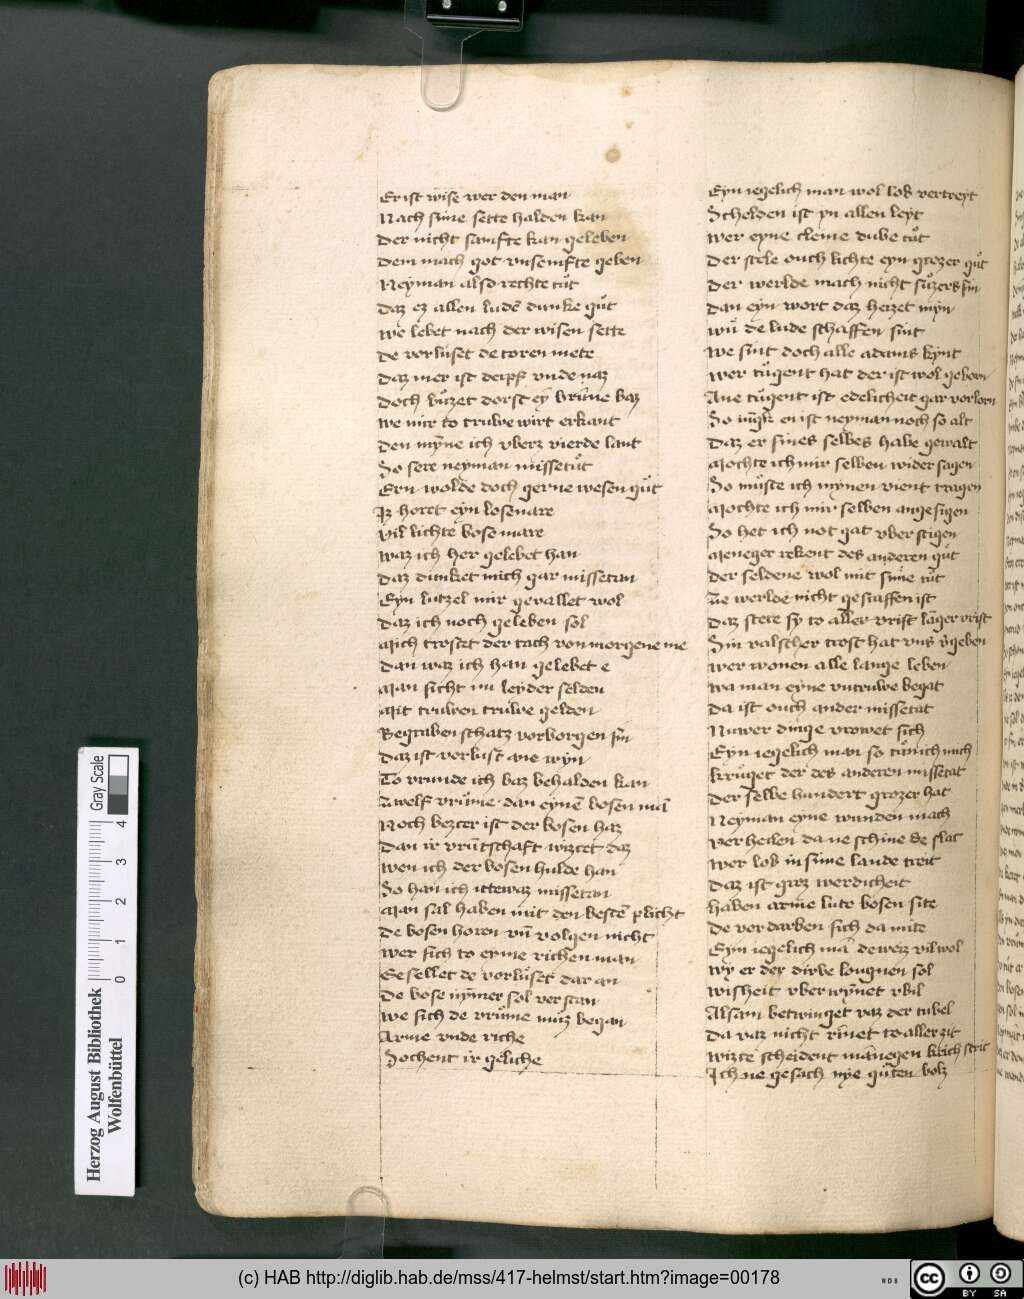 Er ist wise wer den man
Nach sime sette halden kan
Der nicht samfte kan geleben
Dem mach got vnsemfte geben
Neyman also rechte tůt
Daz ez allen ludē dunke gůt
We lebet nach der wisen sette
De vorluset de toren mete
Daz mer ist deipf vnde naz
Doch bůzet dorst eȳ brūne baz
We mir to truwe wirt erkant
Den mȳne ich vberz vierde lant
So sere neyman missetůt
Ern wolde doch gerne wesen gůt
Iz horet eyn losenare
Vil lichte bose mare
Waz ich her gelebet han
Daz dunket mich gar missetan
Eyn lutzel mir gevallet wol
Daz ich noch geleben sol
Mich trostet der tach von morgene me
Dan waz ich han gelebet e
Man sicht nu leyder selden
Mit truwen truwe gelden
Begraben schatz vorborgen sin
Daz ist vorlust ane wyn
To vrunde ich baz behalden kan
Twelf vrůme dan eynē bosen mā
Noch bezter ist der bosen haz
Dan ir vrūtschaft wizcet daz
Wen ich der bosen hulde han
So han ich ittewaz missetan
Man sal haben mit den bestē plicht
De bosen horen vn̄ volgen nicht
Wer sich to eyme richen man
Gesellet de vorlůset dar an
De bose nȳmer sol verstan
We sich de vrůme můz began
Arme vnde riche
Sochent ir geliche
Eyn iegelich man wol lob vertreyt
Schelden ist yn allen leyt
Wer eyne cleine dube tůt
Der stele ouch lichte eyn grozer gůt
Der werlde mach nicht sůzers sin
Dan eyn wort daz heizet myn
Wū de lude schaffen sint
We sint doch alle adams kynt
Wer tůgent hat der ist wol geborn
Ane tůgent ist edelicheit gar vorlorn
So en ist neyman noch so alt
Daz er sines selbes habe gewalt
Mochte ich mir selben wider sagen
So můste ich mynen vient tragen
Mochte ich mir selben angesigen
So het ich not gat vber stigen
Meneger rekent des anderen gůt
Der seldene wol mit sime tůt
De werlde nicht gescaffen ist
Daz stete sy to aller vrist lāger vrist
Sin valscher trost hat vns v̄geben
Wer wonen alle lange leben
Wa man eyne vntruwe begat
Da ist ouch ander missetat
Nuwer dinge vrowet sich
Eyn iegelich man so tůnich mich
Krůget der des anderen missetat
Der selbe hundert grozer hat
Neyman eyne wunden mach
Verheilen da ne schine de slac
Wer lob in sime lande treit
Daz ist groz werdicheit
Haben arme lute bosen site
De vordarben sich da mite
Eyn iegelich mā de weiz vil wol
Wy er dey dirbe louguen sol
Wisheit vberwȳnet vbil
Alsam betwinget vaz der tubel
Da vaz nicht rinet to aller zit
Wizte scheident mānegen strit
Ich ne gesach nye gůten bolz
Herzog August Bibliothek
Wolfenbüttel
Gray Scale
0 1 2 3 4
(c) HAB http://diglib.hab.de/mss/417-helmst/start.htm?image=00178
WDB
cc BY SA